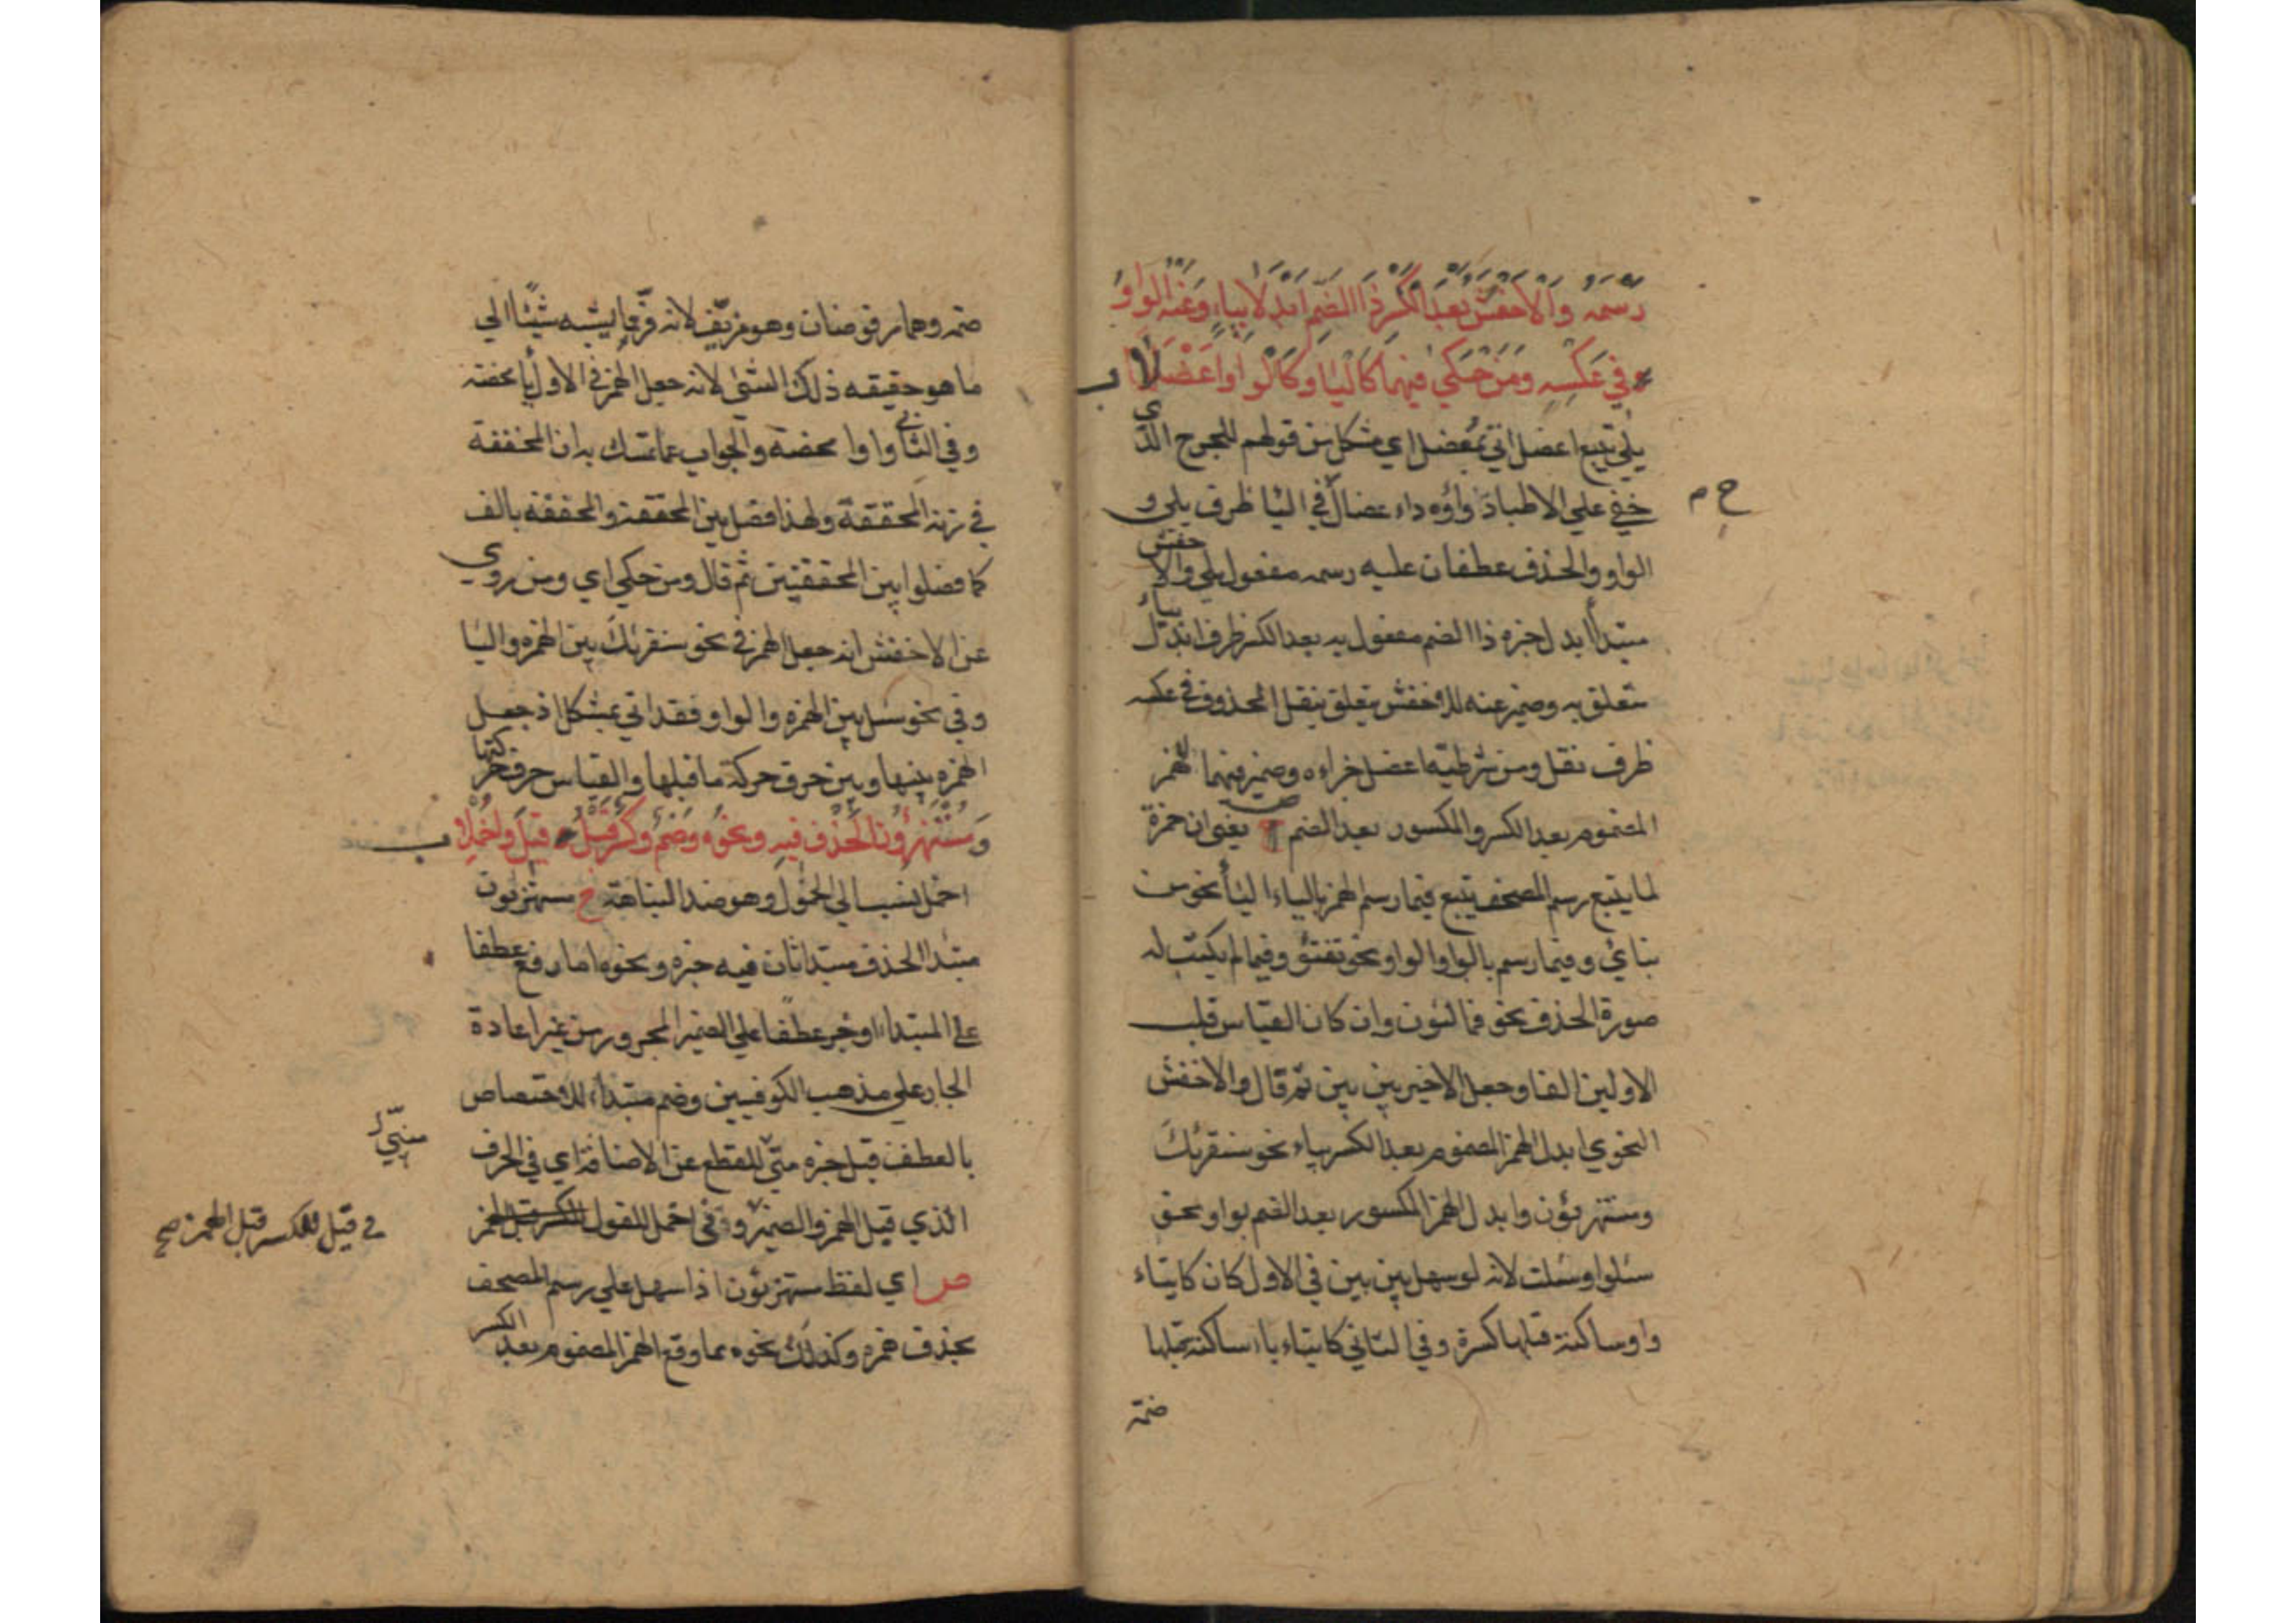 رسمه والاخفش بعد الكسر ذا الضم ابدلا بياء وعنه الواو
في عكسه ومن حكى فيهما كاليا وكالواو اعضلا ب
يلي يتبع اعضل اتي بمعضل اي مشكل من قولهم للجرح الذي
خفي علي الاطباء دواؤه داء عضال في اليا ظرف يلي و
ح م
الواو والحذف عطفان عليه رسمه مفعول يلي والاخفش
مبتدأ ابدل خبره ذا الضم مفعول به بعد الكسر ظرف ابدل بياء
متعلق به وضمير عنه للاخفش يتعلق بنقل المحذوف في عكسه
ظرف نقل ومن شرطية اعضل جزاءه وضمير فيهما للهمز
المضموم بعد الكسر والمكسور بعد الضم ص يعني ان حمزة
لما يتبع رسم المصحف يتبع فيما رسم الهمز بالياء اليأ نحو من
نبائ وفيما رسم بالواو الواو نحو تفتؤ وفيما لم يكتب له
صورة الحذف نحو فمالئون وان كان القياس قلب
الاولين الفا وجعل الاخير بين بين ثم قال والاخفش
النحوي ابدل الهمز المضموم بعد الكسر بياء نحو سنقرئك
ومستهزئون وابدل الهمز المكسور بعد الضم بواو نحو
سئلوا وسئلت لانه لو سهل بين بين في الاول كان كانياء
واو ساكنة قبلها كسرة وفي الثاني كانياء ياء ساكنة قبلها
ضمة
ضمه وهما مرفوضان وهو مزيف لانه فر مما يشبه شيئا الي
ما هو حقيقه ذلك الشئ لانه جعل الهمز في الاول ياً محضة
وفي الثاني واوا محضة والجواب عما تمسك به ان المخففة
في زنة المحققة ولهذا فصل بين المحققة والمخففة بالف
كما فصلوا بين المحققتين ثم قال ومن حكي اي ومن روي
عن الاخفش انه جعل الهمز في نحو سنقرئك بين الهمزه واليا
وفي نحو سئل بين الهمزه والواو فقد اتي بمشكل اذ جعل
الهمزه بينها وبين حرف حركة ما قبلها والقياس حرف حركتها
ومستهزؤن الحذف فيه ونحوه وضم وكسر قبل قيل واخملا ب
اخمل نسب الي الخمول وهو ضد النباهة ح مستهزئون
مبتدا الحذف مبتدا ثان فيه خبره ونحوه اما رفع عطفا
علي المبتداء او جر عطفا علي الضمير المجرور من غير اعادة
الجار علي مذهب الكوفيين وضم مبتداء للاختصاص
بالعطف قبل خبره مبني للقطع عن الاضافة اي في الحرف
مبني
الذي قبل الهمز والضمير في اخمل للقول الكسر قبل الهمز
في قيل للكسر قبل الهمز صح
ص اي لفظ مستهزئون اذا سهل علي رسم المصحف
بحذف همزه وكذلك نحوه مما وقع الهمز المضموم بعد الكسر